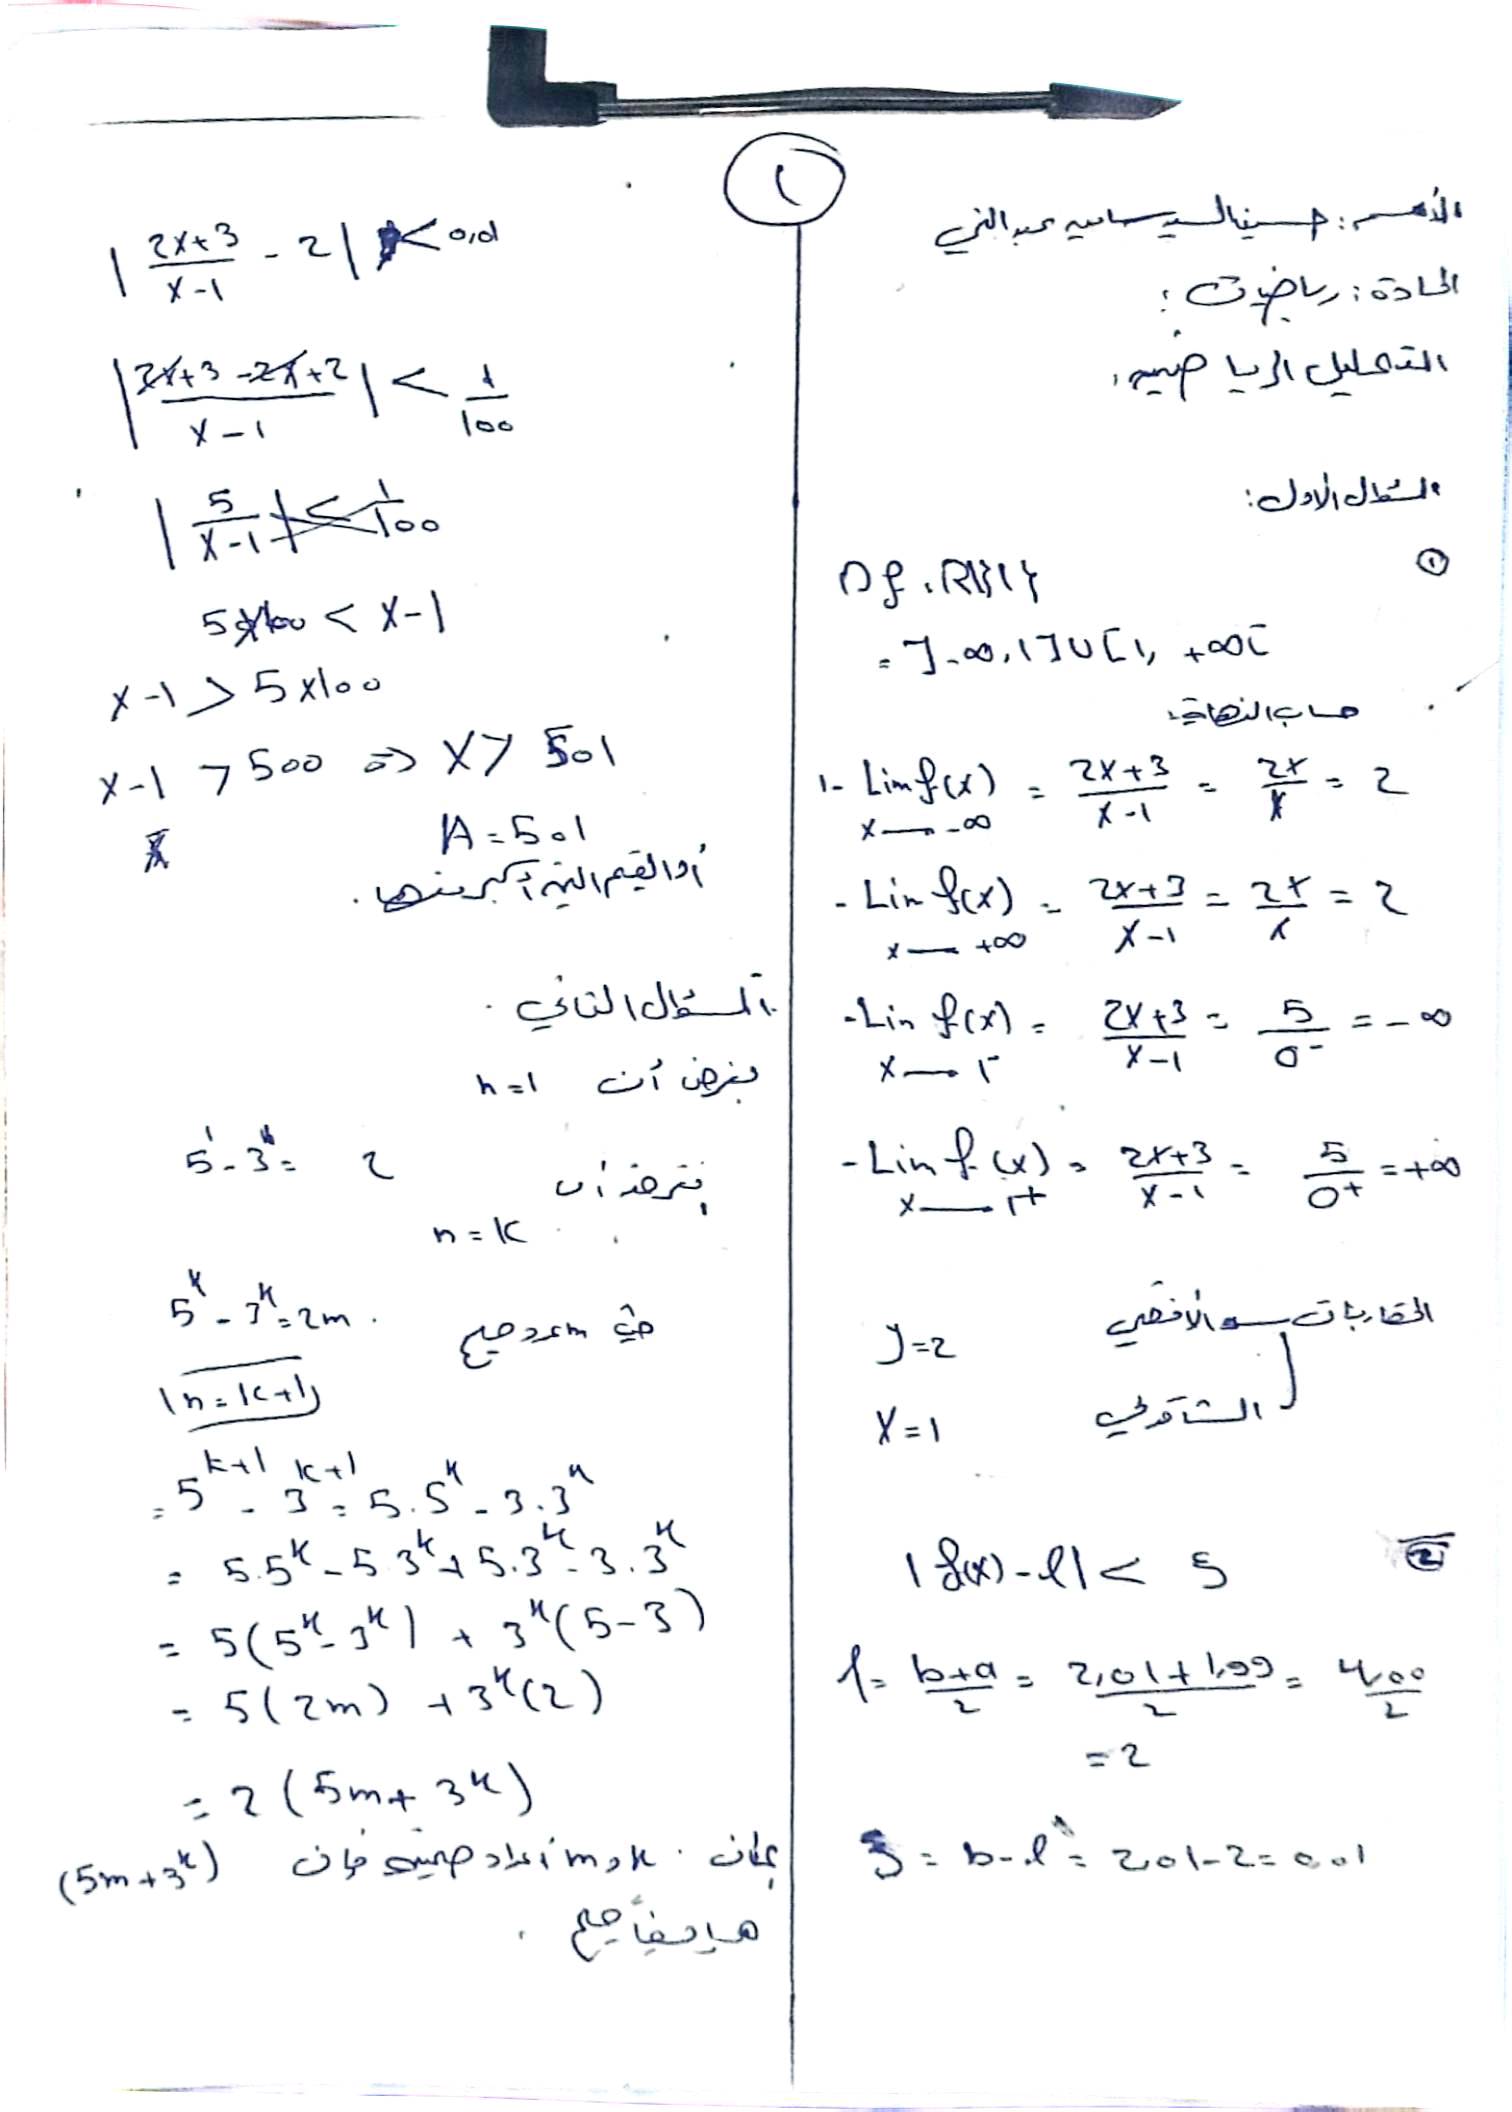 ١
الأسم :
المادة : رياضيات :
التحليل الرياضي
السؤال الاول :
①
Df = R\{1}
= ]-∞, 1[ U ]1, +∞[
حساب النهايات
1- Lim f(x) = 2x+3 / x-1 = 2x / x = 2
x → -∞
- Lim f(x) = 2x+3 / x-1 = 2x / x = 2
x → +∞
- Lim f(x) = 2x+3 / x-1 = 5 / 0- = -∞
x → 1-
- Lim f(x) = 2x+3 / x-1 = 5 / 0+ = +∞
x → 1+
المقاربات الأفقي y=2
الشاقولي x=1
② |f(x)-l| < ε
l = b+a / 2 = 2,01+1,99 / 2 = 4,00 / 2
= 2
ε = b-l = 2,01-2 = 0,01
| 2x+3 / x-1 - 2 | < 0,01
| 2x+3-2x+2 / x-1 | < 1 / 100
| 5 / x-1 | < 1 / 100
5x100 < x-1
x-1 > 5x100
x-1 > 500 => x > 501
A = 501
أو القيم التي أكبر منها .
السؤال الثاني .
بفرض أن n=1
5^1 - 3^1 = 2
بفرض أن
n = k
5^k - 3^k = 2m . حيث m عدد صحيح
n = k+1
= 5^k+1 - 3^k+1 = 5.5^k - 3.3^k
= 5.5^k - 5.3^k + 5.3^k - 3.3^k
= 5(5^k - 3^k) + 3^k(5-3)
= 5(2m) + 3^k(2)
= 2(5m + 3^k)
بمان . k و m أعداد صحيحة فان (5m + 3^k)
هو ايضاً صحيح .